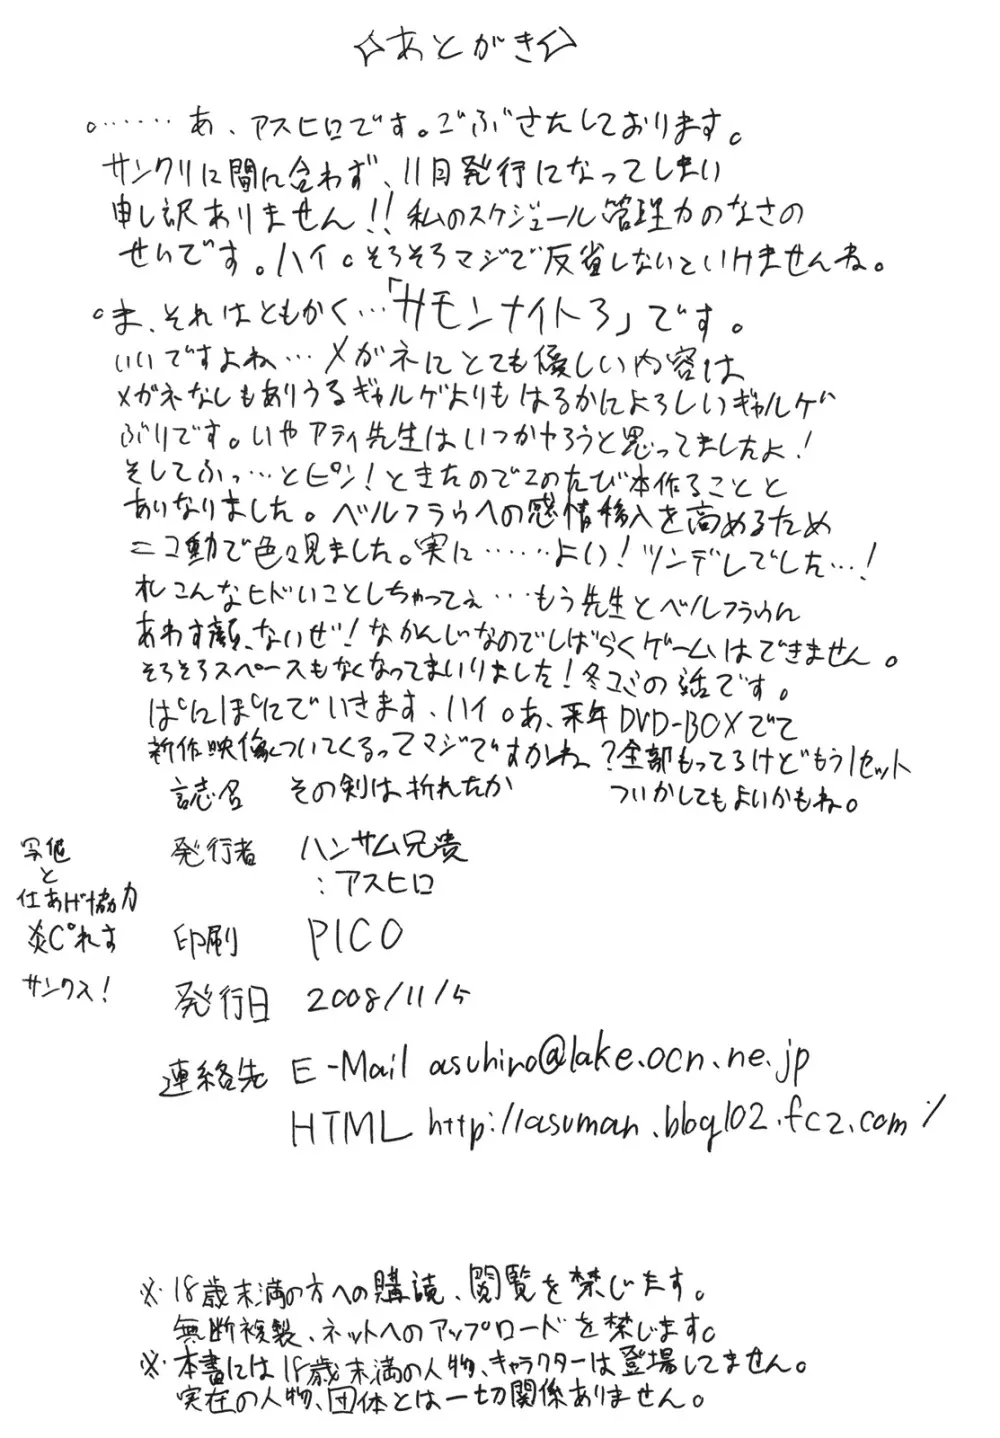 ☆あとがき☆
○……あ、アスヒロです。ごぶさたしております。
サンクリに間に合わず、11月発行になってしまい
申し訳ありません!!私のスケジュール管理力のなさの
せいです。ハイ。そろそろマジで反省しないといけませんね。
○ま、それはともかく…「サモンナイト3」です。
いいですよね…メガネにとても優しい内容は
メガネなしもありうるギャルゲよりもはるかによろしいギャルゲ
ぶりです。いやアティ先生はいつかやろうと思ってましたよ!
そしてふっ…とピン!ときたのでこのたび本作ることと
あいなりました。ベルフラウへの感情移入を高めるため
ニコ動で色々見ました。実に……よい!ツンデレでした…!
れこんなヒドいことしちゃってぇ…もう先生とベルフラウん
あわす顔、ないぜ!なかんじなのでしばらくゲームはできません。
そろそろスペースもなくなってまいりました!冬コミの話です。
ぱにぽにでいきます、ハイ。あ、来年DVD-BOXでて
新作映像ついてくるってマジですかね?全部もってるけどもう1セット
ついかしてもよいかもね。
誌名 その剣は折れたか
写植
と
仕あげ協力
炎ぴれす
サンクス!
発行者 ハンサム兄貴
:アスヒロ
印刷 PICO
発行日 2008/11/5
連絡先 E-Mail asuhiro@lake.ocn.ne.jp
HTML http://asuman.blog102.fc2.com/
※18歳未満の方への購読、閲覧を禁じます。
無断複製、ネットへのアップロードを禁じます。
※本書には18歳未満の人物、キャラクターは登場してません。
実在の人物、団体とは一切関係ありません。